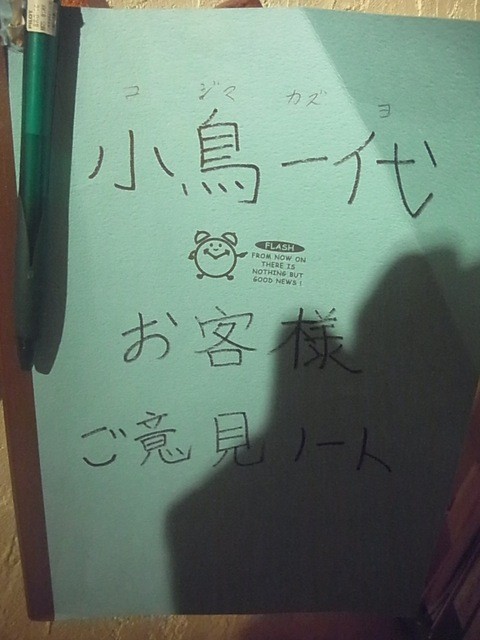 コ ジマ カズ ヨ
小鳥一代
FLASH
FROM NOW ON
THERE IS
NOTHING BUT
GOOD NEWS!
お客様
ご意見ノート